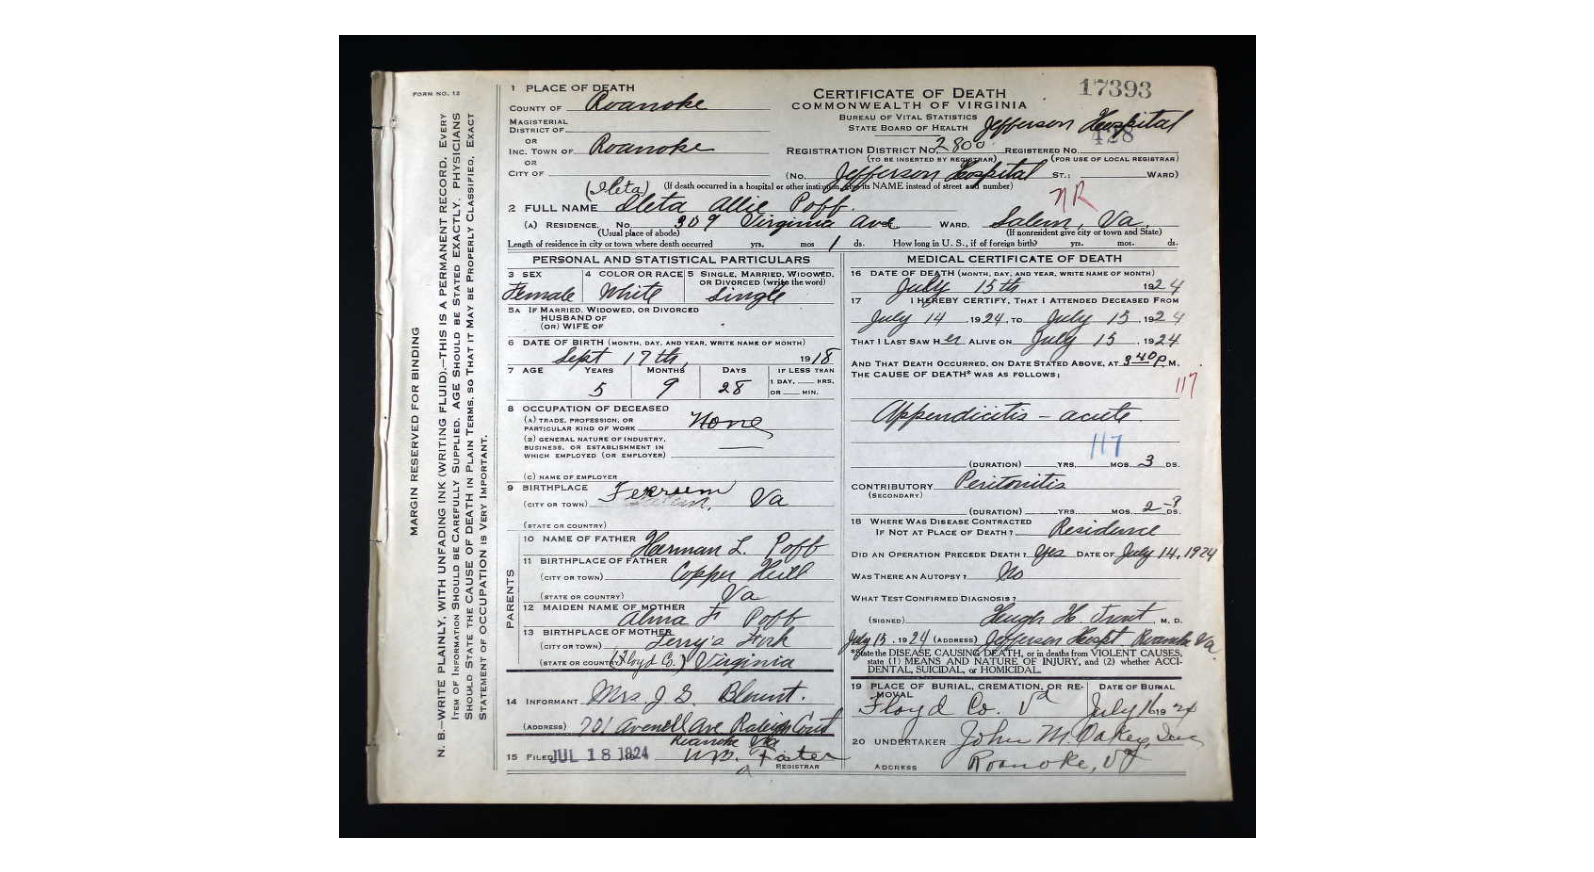 FORM NO. 12
MARGIN RESERVED FOR BINDING
N. B.—WRITE PLAINLY, WITH UNFADING INK (WRITING FLUID).—THIS IS A PERMANENT RECORD. EVERY
ITEM OF INFORMATION SHOULD BE CAREFULLY SUPPLIED. AGE SHOULD BE STATED EXACTLY. PHYSICIANS
SHOULD STATE THE CAUSE OF DEATH IN PLAIN TERMS, SO THAT IT MAY BE PROPERLY CLASSIFIED. EXACT
STATEMENT OF OCCUPATION IS VERY IMPORTANT.
1 PLACE OF DEATH
COUNTY OF Roanoke
MAGISTERIAL
DISTRICT OF
OR
INC. TOWN OF Roanoke
OR
CITY OF
CERTIFICATE OF DEATH
COMMONWEALTH OF VIRGINIA
BUREAU OF VITAL STATISTICS
STATE BOARD OF HEALTH
17393
Jefferson Hospital
428
REGISTRATION DISTRICT NO. 2800 REGISTERED NO.
(TO BE INSERTED BY REGISTRAR) (FOR USE OF LOCAL REGISTRAR)
(No. Jefferson Hospital ST.; WARD)
(If death occurred in a hospital or other institution, give its NAME instead of street and number)
(Ileta)
2 FULL NAME Ileta Allie Poff.
NR
(A) RESIDENCE. No. 309 Virginia Ave WARD. Salem, Va.
(Usual place of abode) (If nonresident give city or town and State)
Length of residence in city or town where death occurred yrs. mos 1 ds. How long in U. S., if of foreign birth? yrs. mos. ds.
PERSONAL AND STATISTICAL PARTICULARS
3 SEX Female
4 COLOR OR RACE White
5 SINGLE, MARRIED, WIDOWED,
OR DIVORCED (write the word)
Single
5A IF MARRIED, WIDOWED, OR DIVORCED
HUSBAND OF
(OR) WIFE OF
6 DATE OF BIRTH (MONTH, DAY, AND YEAR, WRITE NAME OF MONTH)
Sept 17th, 1918
7 AGE YEARS MONTHS DAYS IF LESS THAN
1 DAY, HRS.
OR MIN.
5 9 28
8 OCCUPATION OF DECEASED
(A) TRADE, PROFESSION, OR
PARTICULAR KIND OF WORK None
(B) GENERAL NATURE OF INDUSTRY,
BUSINESS, OR ESTABLISHMENT IN
WHICH EMPLOYED (OR EMPLOYER)
(C) NAME OF EMPLOYER
9 BIRTHPLACE
(CITY OR TOWN) Ferrum Va
(STATE OR COUNTRY)
PARENTS
10 NAME OF FATHER Herman L. Poff
11 BIRTHPLACE OF FATHER
(CITY OR TOWN) Copper Hill
(STATE OR COUNTRY) Va
12 MAIDEN NAME OF MOTHER
Alma F Poff
13 BIRTHPLACE OF MOTHER
(CITY OR TOWN) Terry's Fork
(STATE OR COUNTRY) (Floyd Co.) Virginia
14 INFORMANT Mrs J. G. Blount.
(ADDRESS) 701 Avenell Ave Raleigh Court
Roanoke Va
15 FILED JUL 18 1924 Foster
REGISTRAR
MEDICAL CERTIFICATE OF DEATH
16 DATE OF DEATH (MONTH, DAY, AND YEAR, WRITE NAME OF MONTH)
July 15th 1924
17 I HEREBY CERTIFY, THAT I ATTENDED DECEASED FROM
July 14, 1924, TO July 15, 1924
THAT I LAST SAW HER ALIVE ON July 15, 1924
AND THAT DEATH OCCURRED, ON DATE STATED ABOVE, AT 340 P.M.
THE CAUSE OF DEATH* WAS AS FOLLOWS:
117
Appendicitis - acute
117
(DURATION) YRS. MOS. 3 DS.
CONTRIBUTORY Peritonitis
(SECONDARY)
(DURATION) YRS. MOS. 2-3 DS.
18 WHERE WAS DISEASE CONTRACTED
IF NOT AT PLACE OF DEATH? Residence
DID AN OPERATION PRECEDE DEATH? Yes DATE OF July 14, 1924
WAS THERE AN AUTOPSY? No
WHAT TEST CONFIRMED DIAGNOSIS?
(SIGNED) Hugh H. Trout, M. D.
July 15, 1924 (ADDRESS) Jefferson Hospt, Roanoke Va.
*State the DISEASE CAUSING DEATH, or in deaths from VIOLENT CAUSES,
state (1) MEANS AND NATURE OF INJURY, and (2) whether ACCI-
DENTAL, SUICIDAL, or HOMICIDAL.
19 PLACE OF BURIAL, CREMATION, OR RE-
MOVAL
Floyd Co. Va
DATE OF BURIAL
July 16 1924
20 UNDERTAKER John M. Oakey, Inc
ADDRESS Roanoke, Va